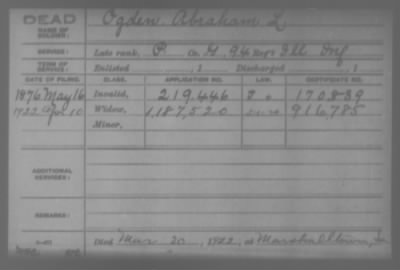 DEAD Ogden Abraham L
NAME OF SOLDIER:
SERVICE: Late rank, P. Co. G, 94 Reg't Ill Inf
TERM OF SERVICE: Enlisted , 1 Discharged , 1
DATE OF FILING. CLASS. APPLICATION NO. LAW. CERTIFICATE NO.
1876 May 16 Invalid, 219.446 170.839
1922 Apr 10 Widow, 1,187,520 916,785
Minor,
ADDITIONAL SERVICES:
REMARKS:
Died Mar 20, 1922, at Marshalltown, Ia